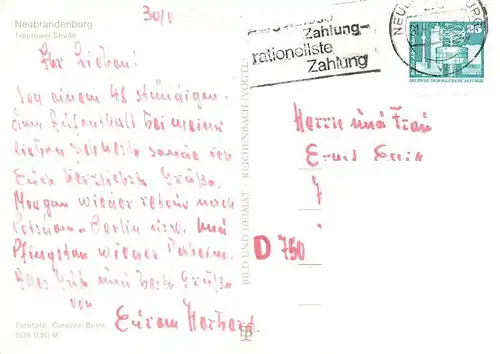 Neubrandenburg
Treptower Straße
30/V
Ihr Lieben!
Von einem 48 stündigen
Aufenthalt bei meine
lieben sende ich
Euch herzlichste Grüße.
Morgen wieder retour nach
Potsdam-Berlin usw. und
Pfingsten wieder Daheim.
Alles Gute und beste Grüße
von
Eurem Herbert
Foto: Berlin
DDR 0,20 M
BILD UND HEIMAT · REICHENBACH (VOGTL)
Zahlung-
rationellste
Zahlung
25
DEUTSCHE DEMOKRATISCHE REPUBLIK
Herrn und Frau
Ernst
D 750